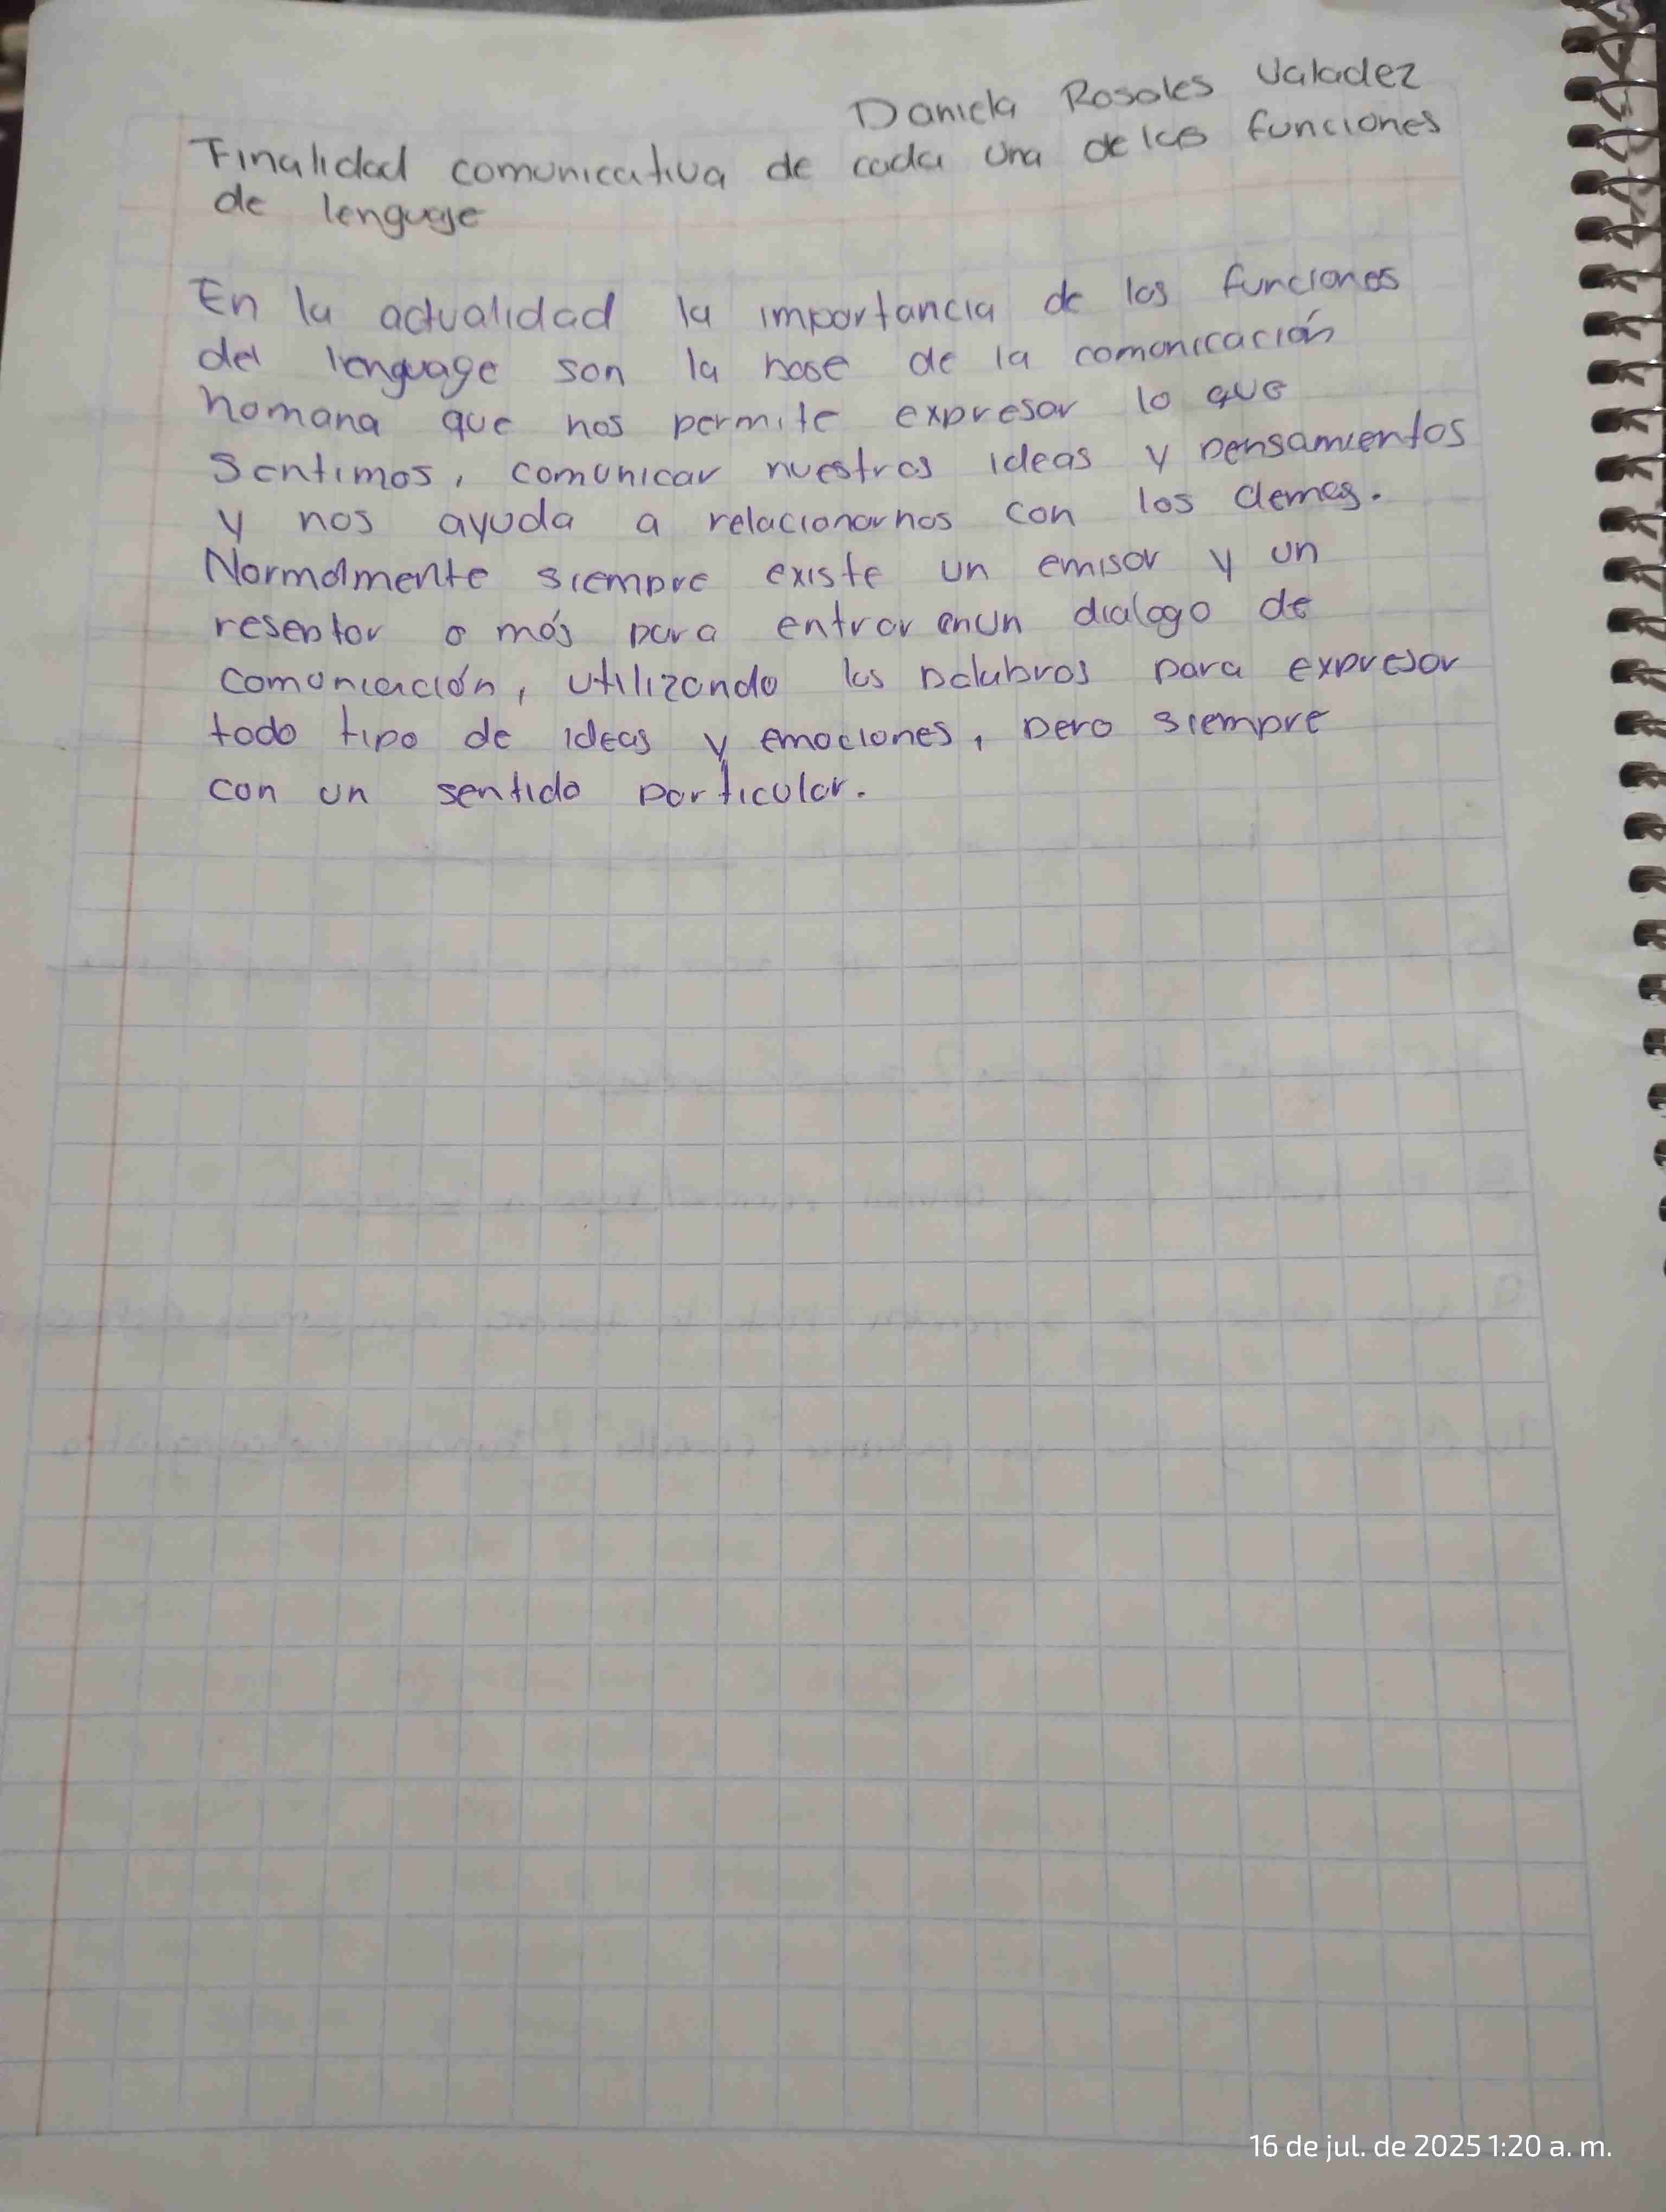 Daniela Rosales Valadez
Finalidad comunicativa de cada una de las funciones
de lenguaje
En la actualidad la importancia de las funciones
del lenguage son la base de la comonicación
homana que nos permite expresar lo que
Sentimos, comunicar nuestras ideas y pensamientos
y nos ayuda a relacionarnos con los demas.
Normalmente siempre existe un emisor y un
reseptor o más para entrar en un dialogo de
comunicación, utilizando las palabras para expresar
todo tipo de ideas y emociones, pero siempre
con un sentido particular.
16 de jul. de 2025 1:20 a. m.